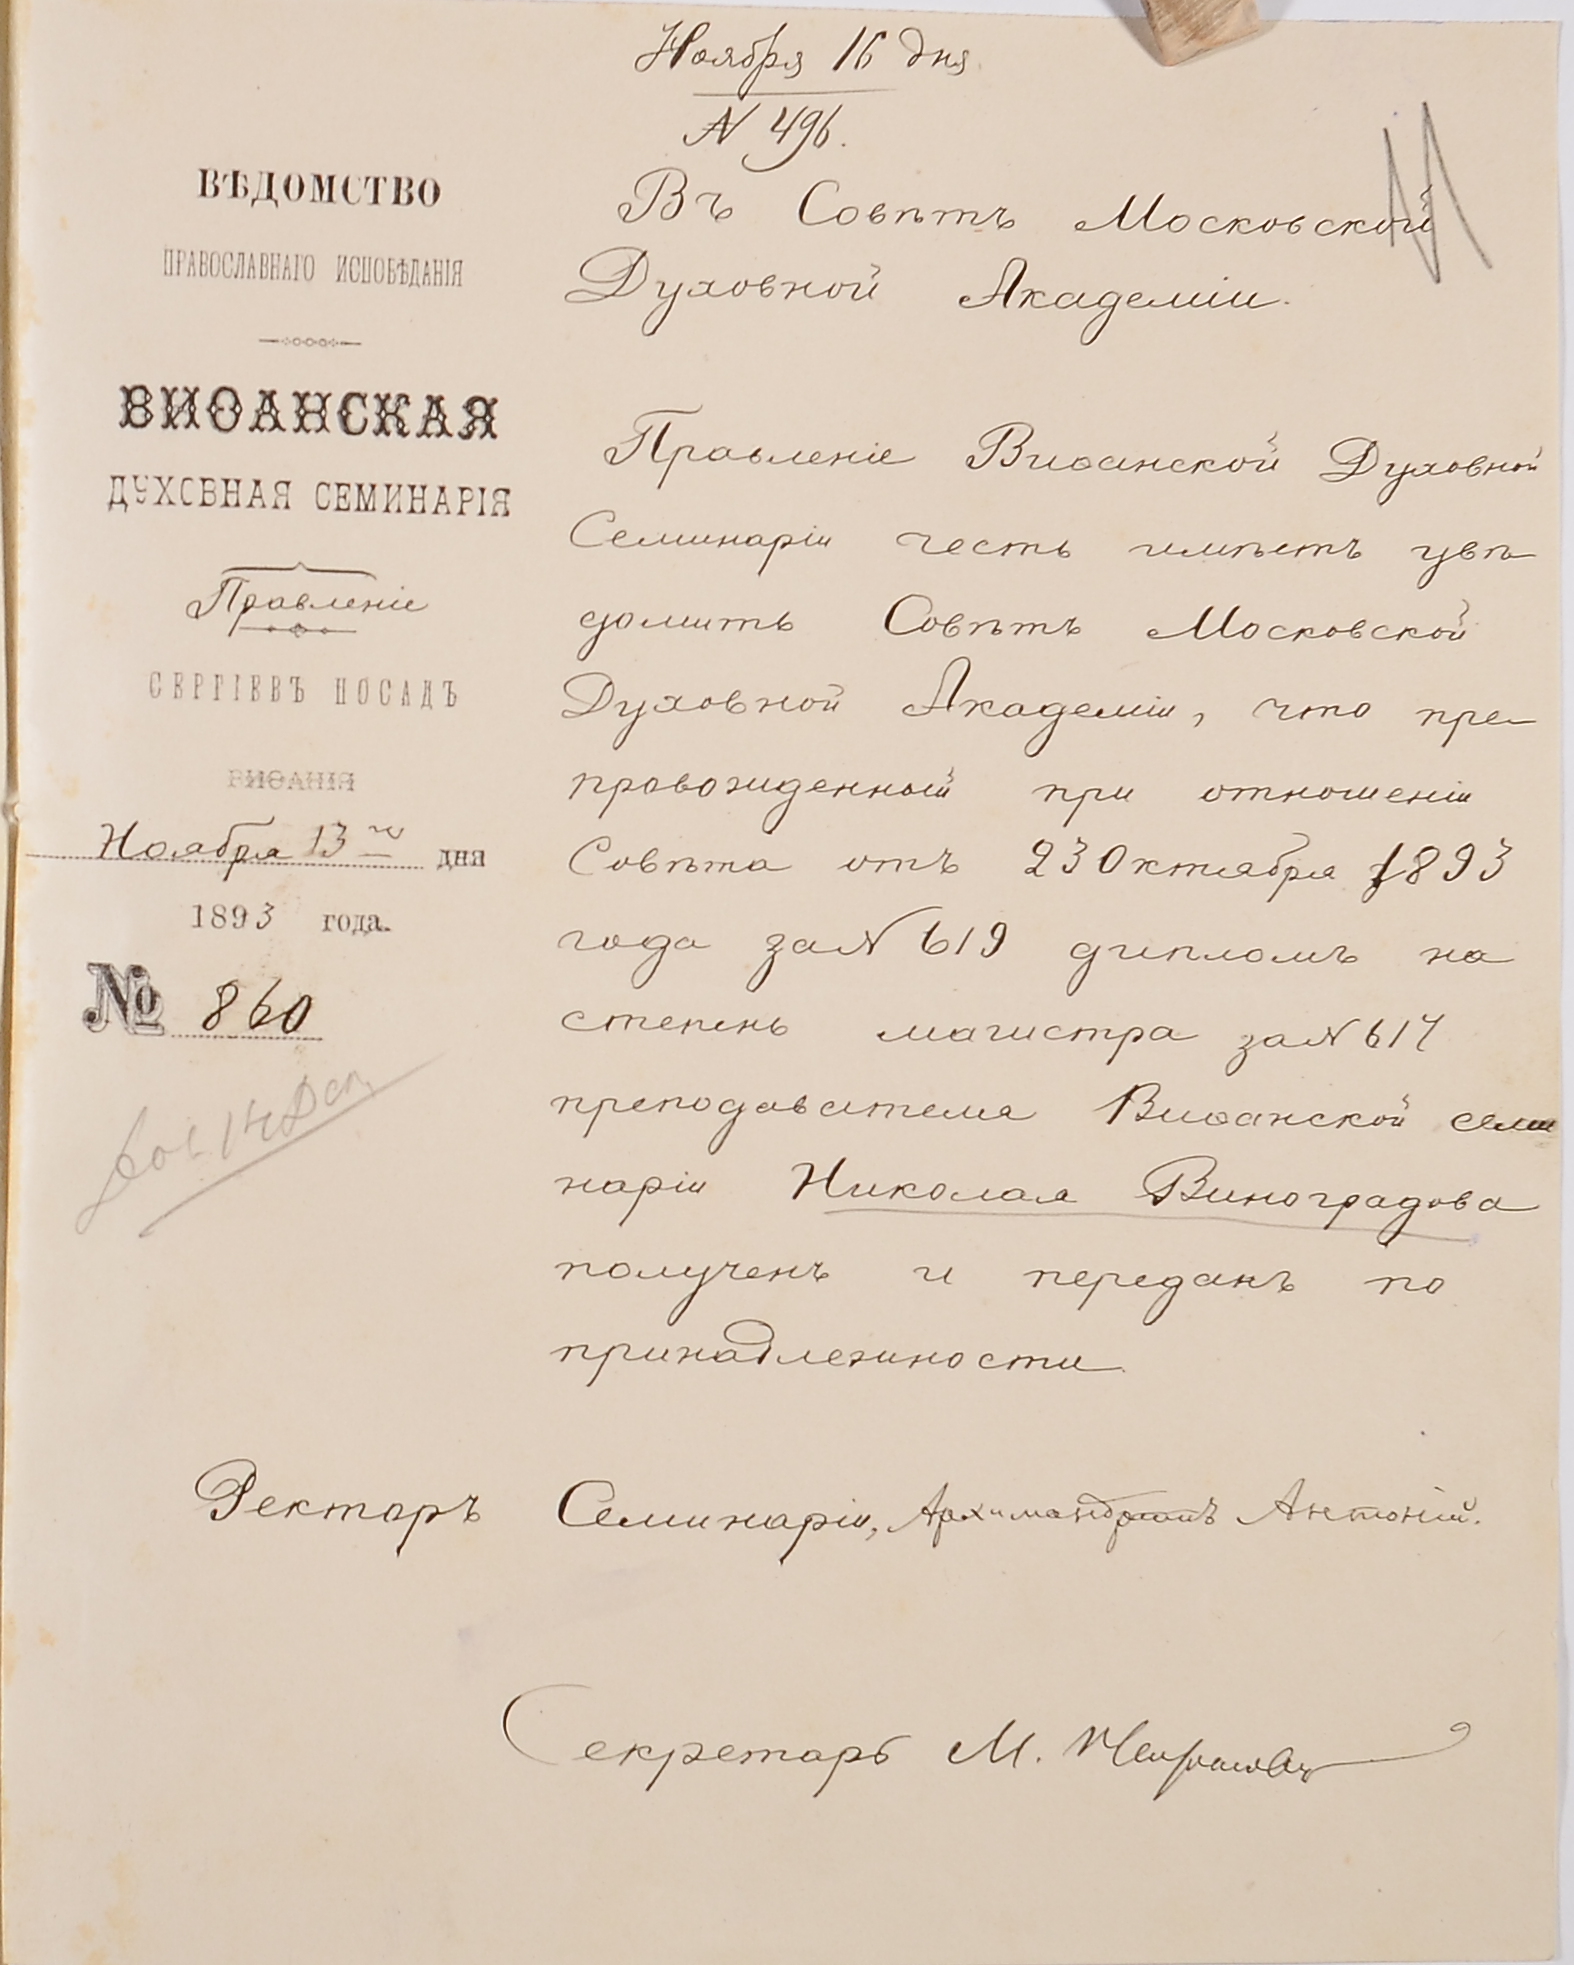 Ноября 16 дня
N 496.
ВѢДОМСТВО
ПРАВОСЛАВНАГО ИСПОВѢДАНІЯ
ВИѲАНСКАЯ
ДУХОВНАЯ СЕМИНАРІЯ
Правленіе
СЕРГІЕВЪ ПОСАДЪ
ВИѲАНІЯ
Ноября 13 дня
1893 года.
№ 860
Въ Совѣтъ Московской
Духовной Академіи.
Правленіе Виѳанской Духовной
Семинаріи честь имѣетъ увѣ
домить Совѣтъ Московской
Духовной Академіи, что пре-
провожденный при отношеніи
Совѣта отъ 23 Октября 1893
года за N 619 дипломъ на
степень магистра за N 617
преподавателя Виѳанской семи
наріи Николая Виноградова
полученъ и переданъ по
принадлежности.
Ректоръ Семинаріи, Архимандритъ Антоній.
Секретарь М.